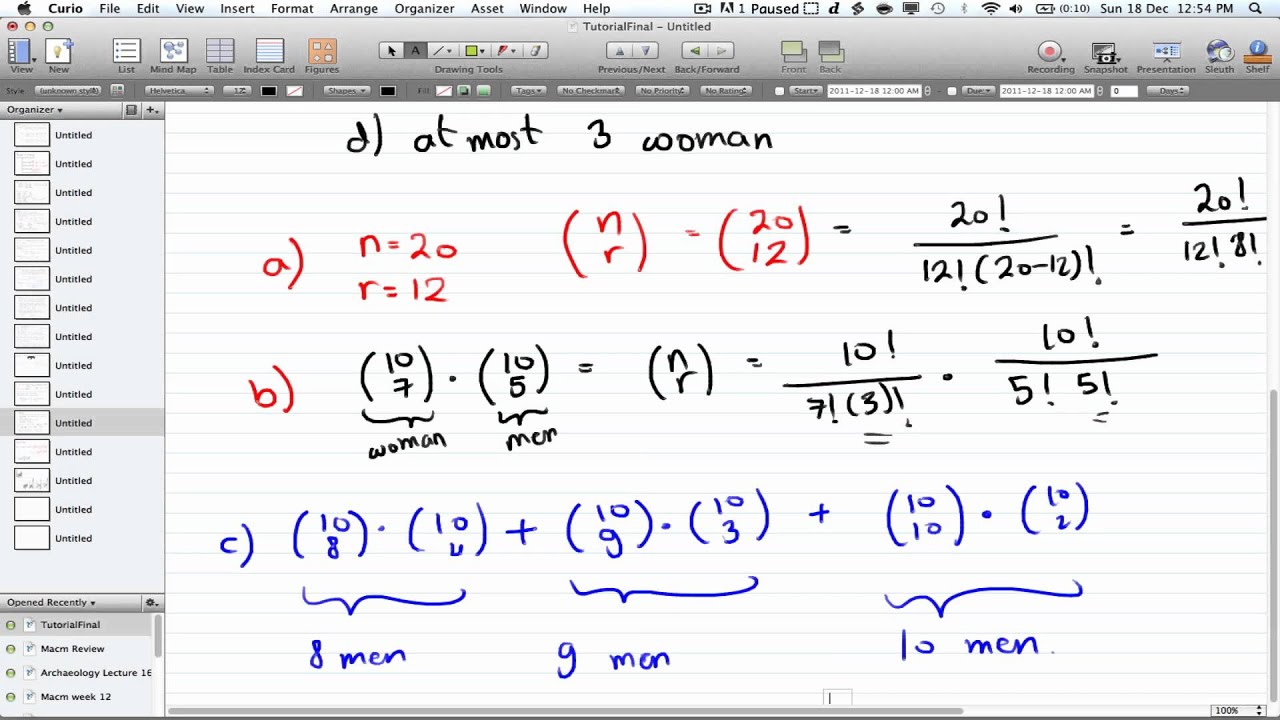 Curio File Edit View Insert Format Arrange Organizer Asset Window Help 1 Paused (0:10) Sun 18 Dec 12:54 PM
TutorialFinal – Untitled
View New List Mind Map Table Index Card Figures Drawing Tools Previous/Next Back/Forward Front Back Recording Snapshot Presentation Sleuth Shelf
Style (unknown style) Helvetica 12 Shapes Fill Tags No Checkmark No Priority No Rating Start 2011-12-18 12:00 AM Due 2011-12-18 12:00 AM 0 Days
Organizer
Untitled
Untitled
Untitled
Untitled
Untitled
Untitled
Untitled
Untitled
Untitled
Untitled
Untitled
Untitled
Untitled
Untitled
Untitled
Opened Recently
TutorialFinal
Macm Review
Archaeology Lecture 16
Macm week 12
d) at most 3 wooman
a) n=20 r=12 (n r) = (20 12) = 20! / 12! (20-12)! = 20! / 12! 8!
b) (10 7) · (10 5) = (n r) = 10! / 7! (3)! · 10! / 5! 5!
woman men
c) (10 8) · (10 4) + (10 9) · (10 3) + (10 10) · (10 2)
8 men 9 men 10 men.
100%